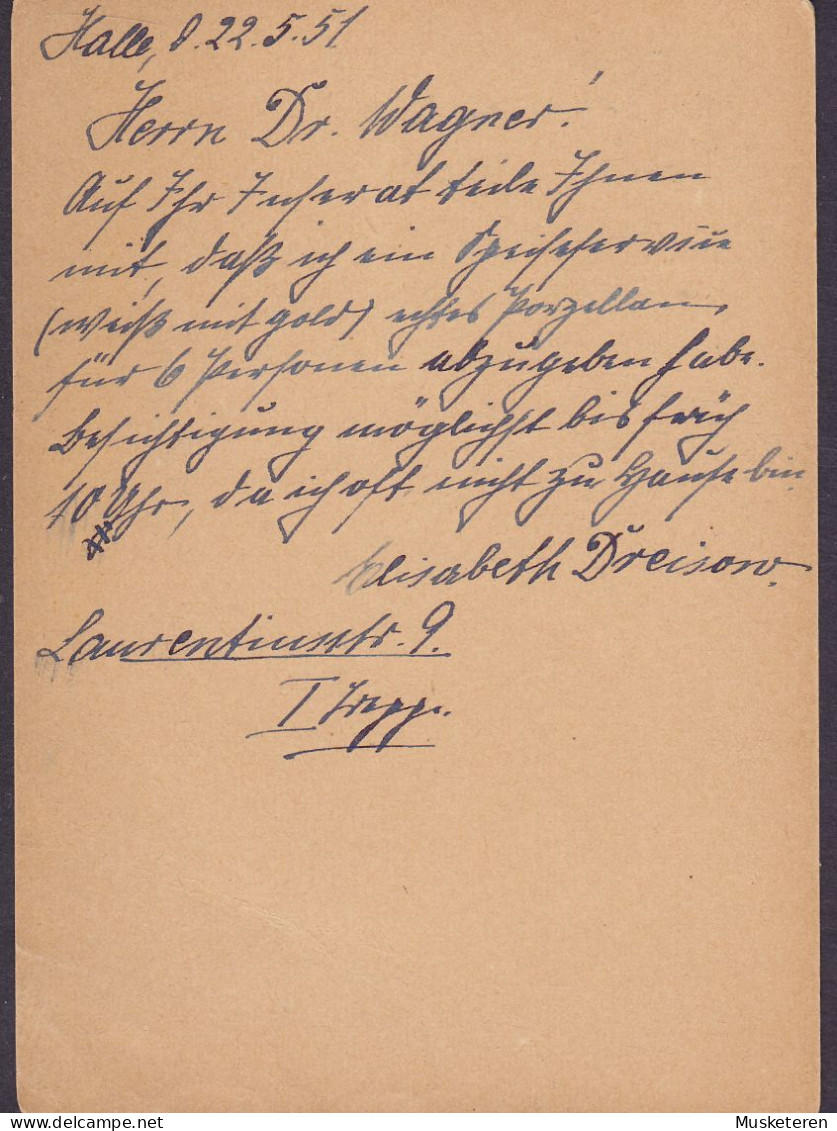 Halle, d. 22.5.51
Herrn Dr. Wagner!
Auf Ihr Inserat teile Ihnen
mit, daß ich ein Speiseservice
(weiß mit gold) echtes Porzellan,
für 6 Personen abzugeben habe.
Besichtigung möglichst bis früh
10 Uhr, da ich oft nicht zu Hause bin.
Elisabeth Dreisow.
Laurentiusstr. 9.
I Trepp.
Musketeren